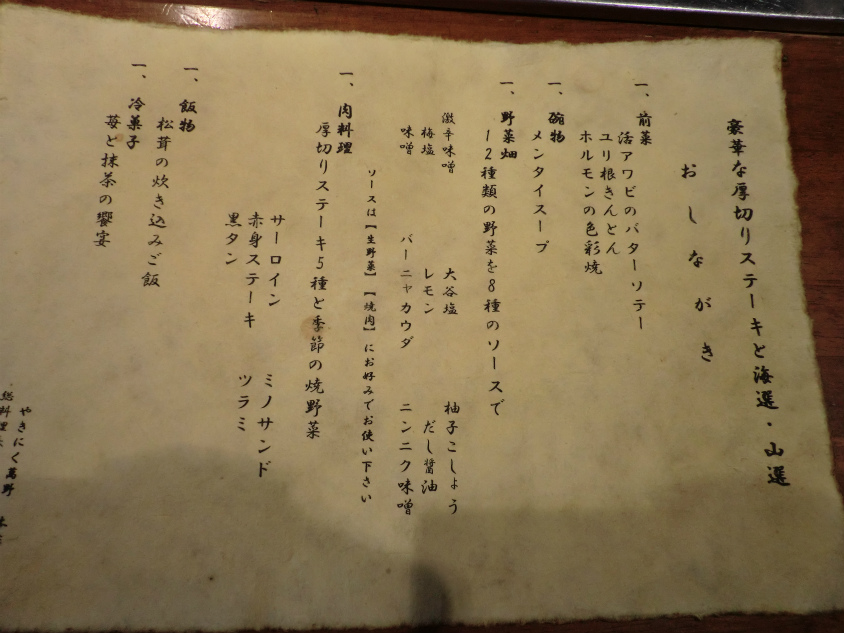 豪華な厚切りステーキと海選・山選
おしながき
一、前菜
活アワビのバターソテー
ユリ根きんとん
ホルモンの色彩焼
一、碗物
メンタイスープ
一、野菜畑
12種類の野菜を8種のソースで
激辛味噌 大谷塩 柚子こしょう
梅塩 レモン だし醤油
味噌 バーニャカウダ ニンニク味噌
ソースは【生野菜】【焼肉】にお好みでお使い下さい
一、肉料理
厚切りステーキ5種と季節の焼野菜
サーロイン ミノサンド
赤身ステーキ ツラミ
黒タン
一、飯物
松茸の炊き込みご飯
一、冷菓子
苺と抹茶の饗宴
やきにく萬野
総料理長